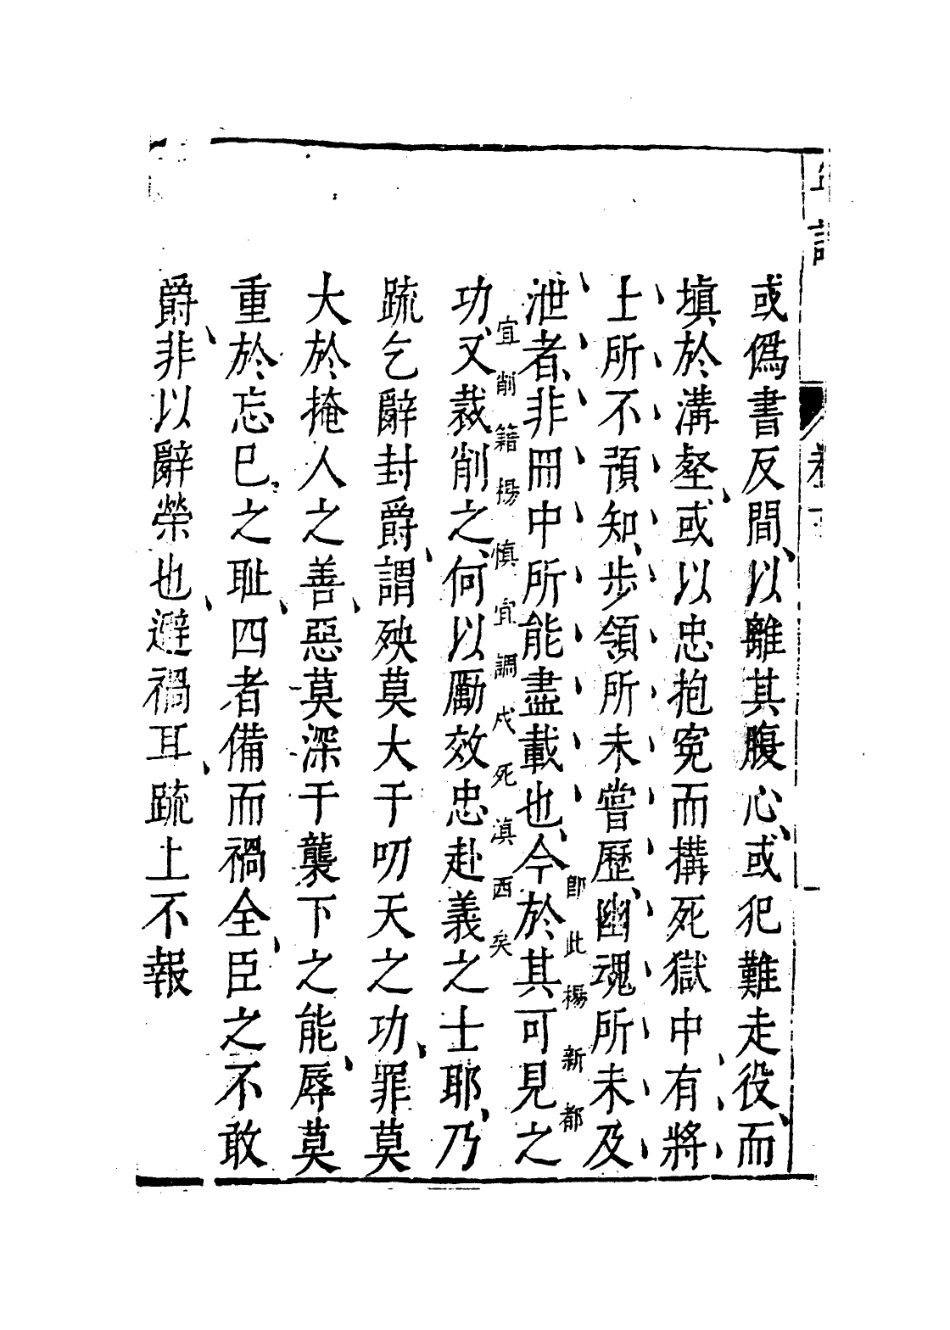 或僞書反間、以離其腹心、或犯難走役、而
填於溝壑、或以忠抱寃而搆死獄中、有將
士所不預知、步領所未嘗歷、幽魂所未及
泄者、非冊中所能盡載也、今於其可見之
卽此楊新都
宜削籍楊慎宜調戍死滇西矣
功、又裁削之、何以勵效忠赴義之士耶、乃
疏乞辭封爵、謂殃莫大于叨天之功、罪莫
大於掩人之善、惡莫深于襲下之能、辱莫
重於忘已之恥、四者備而禍全、臣之不敢
爵、非以辭榮也、避禍耳、疏上不報